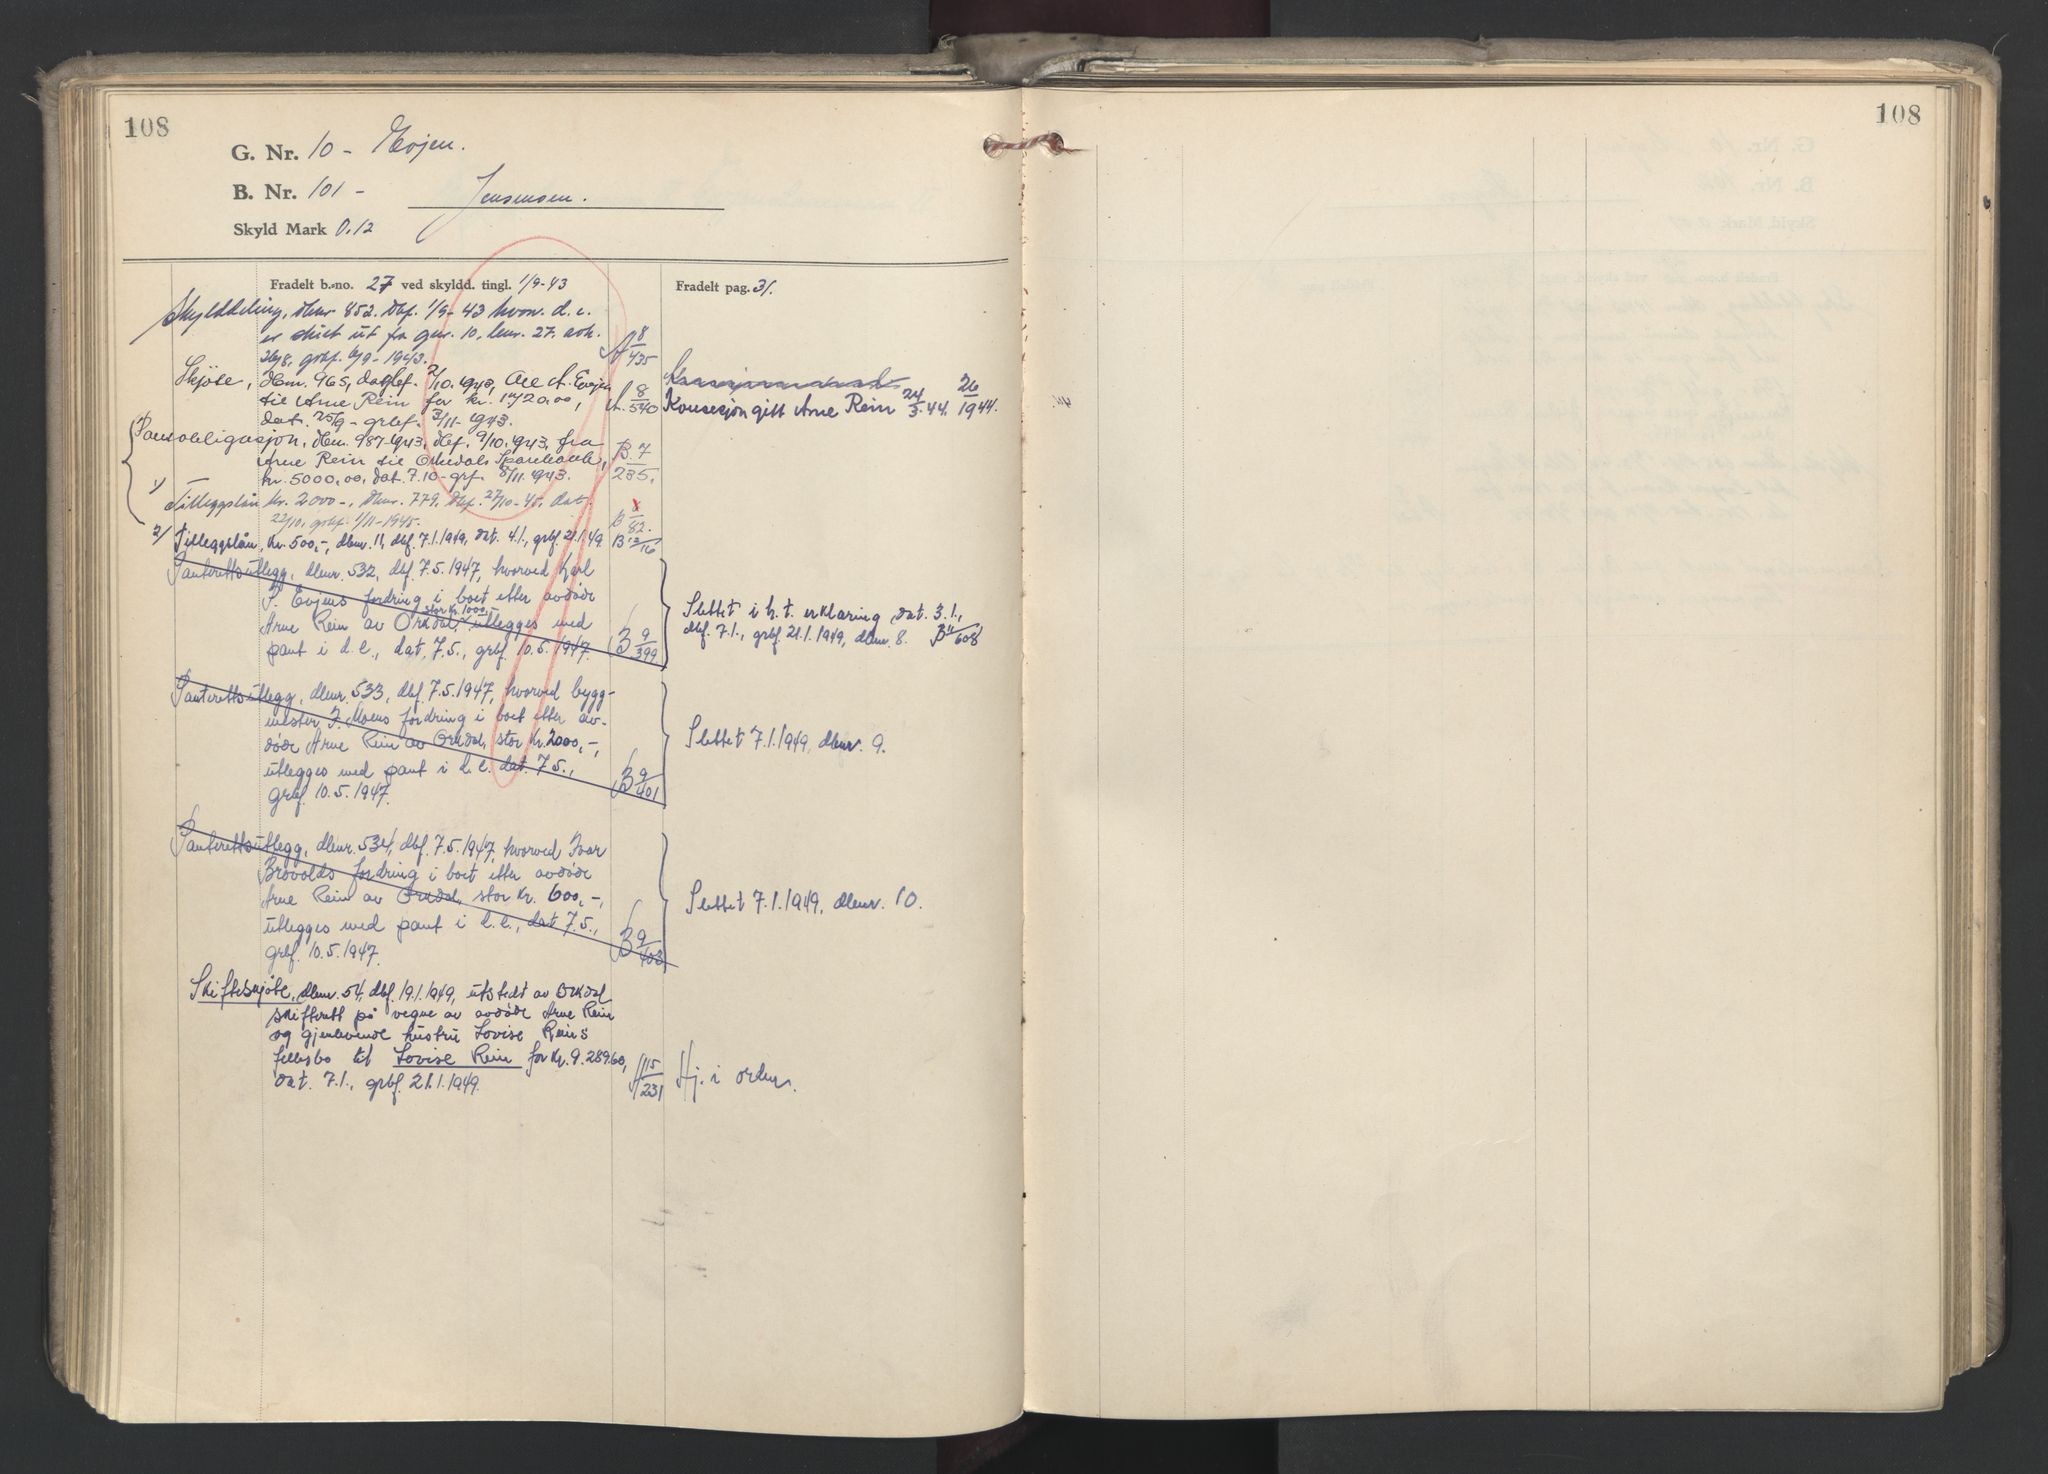 108
G. Nr. 10 - Evjen.
B. Nr. 101 - Jensmoen.
Skyld Mark 0.12
Fradelt b.-no. 27 ved skyldd. tingl. 1/9-43
Fradelt pag. 31.
Skylddeling, dbnr 852. dbf. 1/9-43 hvorv. d. e.
er skilt ut fra gnr. 10, bnr. 27. avh.
26/8, grbf. 6/9-1943. A 8/435
Skjöte, dbnr. 965, dagbf. 2/10.1943, Ole A. Evjen
til Arne Rein for kr. 1200,00, A. 8/540
dat. 25/9 - grbf. 3/11-1943.
Konsesjon gitt Arne Rein 24/3.44. 26/1944.
Panteobligasjon, dbnr. 987-1943, dbf. 9/10.1943, fra
Arne Rein til Orkedals Sparebank, B. 7/235.
kr. 5000,00, dat. 7.10 - grf. 8/11.1943.
1/ Tilleggslån kr. 2000-, dbnr. 779, dbf. 27/10-45, dat.
22/10, grbf. 1/11-1945. B 8/82.
2/ Tilleggslån, kr. 500,-, dbnr. 11, dbf. 7.1.1949, dat. 4.1., grbf. 21.1.49. B 12/16
Panterettsutlegg, dbnr. 532, dbf. 7.5.1947, hvorved Karl
P. Evjens fordring i boet etter avdöde
stor kr. 1000,-
Arne Rein av Orkdal, utlegges med
pant i d.e., dat. 7.5., grbf. 10.5.1947. B 9/399
Slettet i h.t. erklæring dat. 3.1.,
dbf. 7.1., grbf. 21.1.1949, dbnr. 8. B 11/608
Panterettsutlegg, dbnr. 533, dbf. 7.5.1947, hvorved bygg-
mester J. Moens fordring i boet etter av-
döde Arne Rein av Orkdal, stor kr. 2000,-,
utlegges med pant i d.e. dat. 7.5.,
grbf. 10.5.1947. B 9/401
Slettet 7.1.1949, dbnr. 9.
Panterettsutlegg, dbnr. 534, dbf. 7.5.1947, hvorved Ivar
Brovolds fordring i boet etter avdöde
Arne Rein av Orkdal, stor kr. 600,-,
utlegges med pant i d.e., dat 7.5.,
grbf. 10.5.1947. B 9/403
Slettet 7.1.1949, dbnr. 10.
Skifteskjöte, dbnr. 54, dbf. 19.1.1949, utstedt av Orkdal
skifterett på vegne av avdöde Arne Rein
og gjenlevende hustru Lovise Reins
fellesbo til Lovise Rein for kr. 9.289.60,
dat. 7.1., grbf. 21.1.1949. A 15/231
Hj. i orden.
108